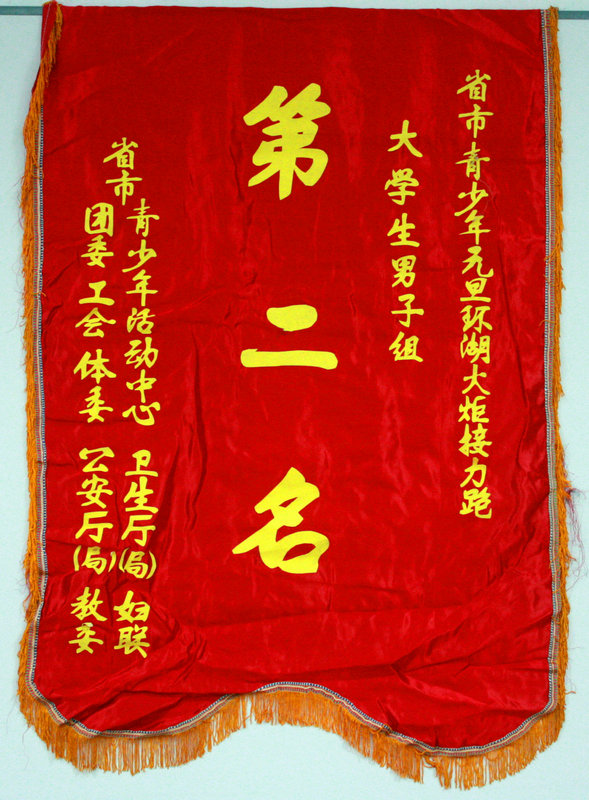 省市青少年元旦环湖火炬接力跑
大学生男子组
第二名
省市
青少年活动中心 卫生厅(局) 妇联
团委 工会 体委 公安厅(局) 教委